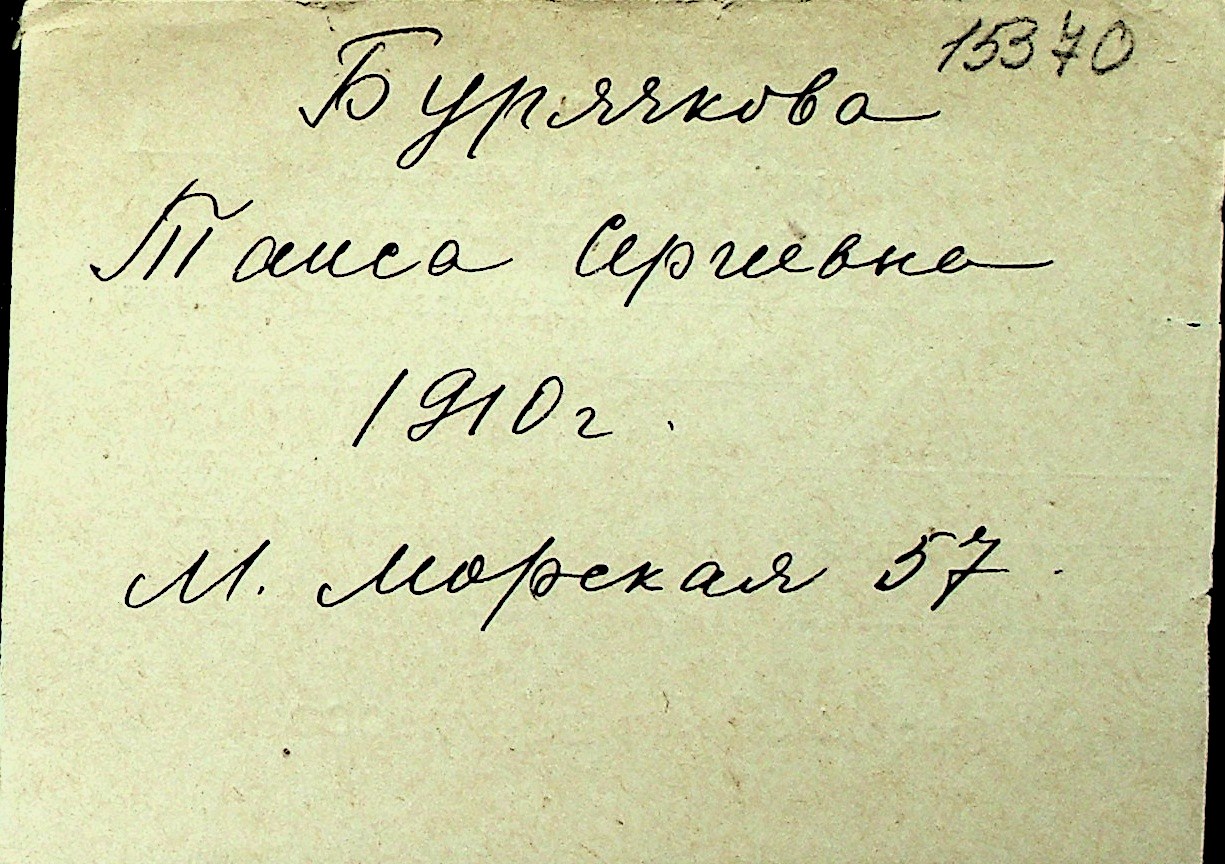 15370
Бурячкова
Таиса Сергеевна
1910г.
М. Морская 57.